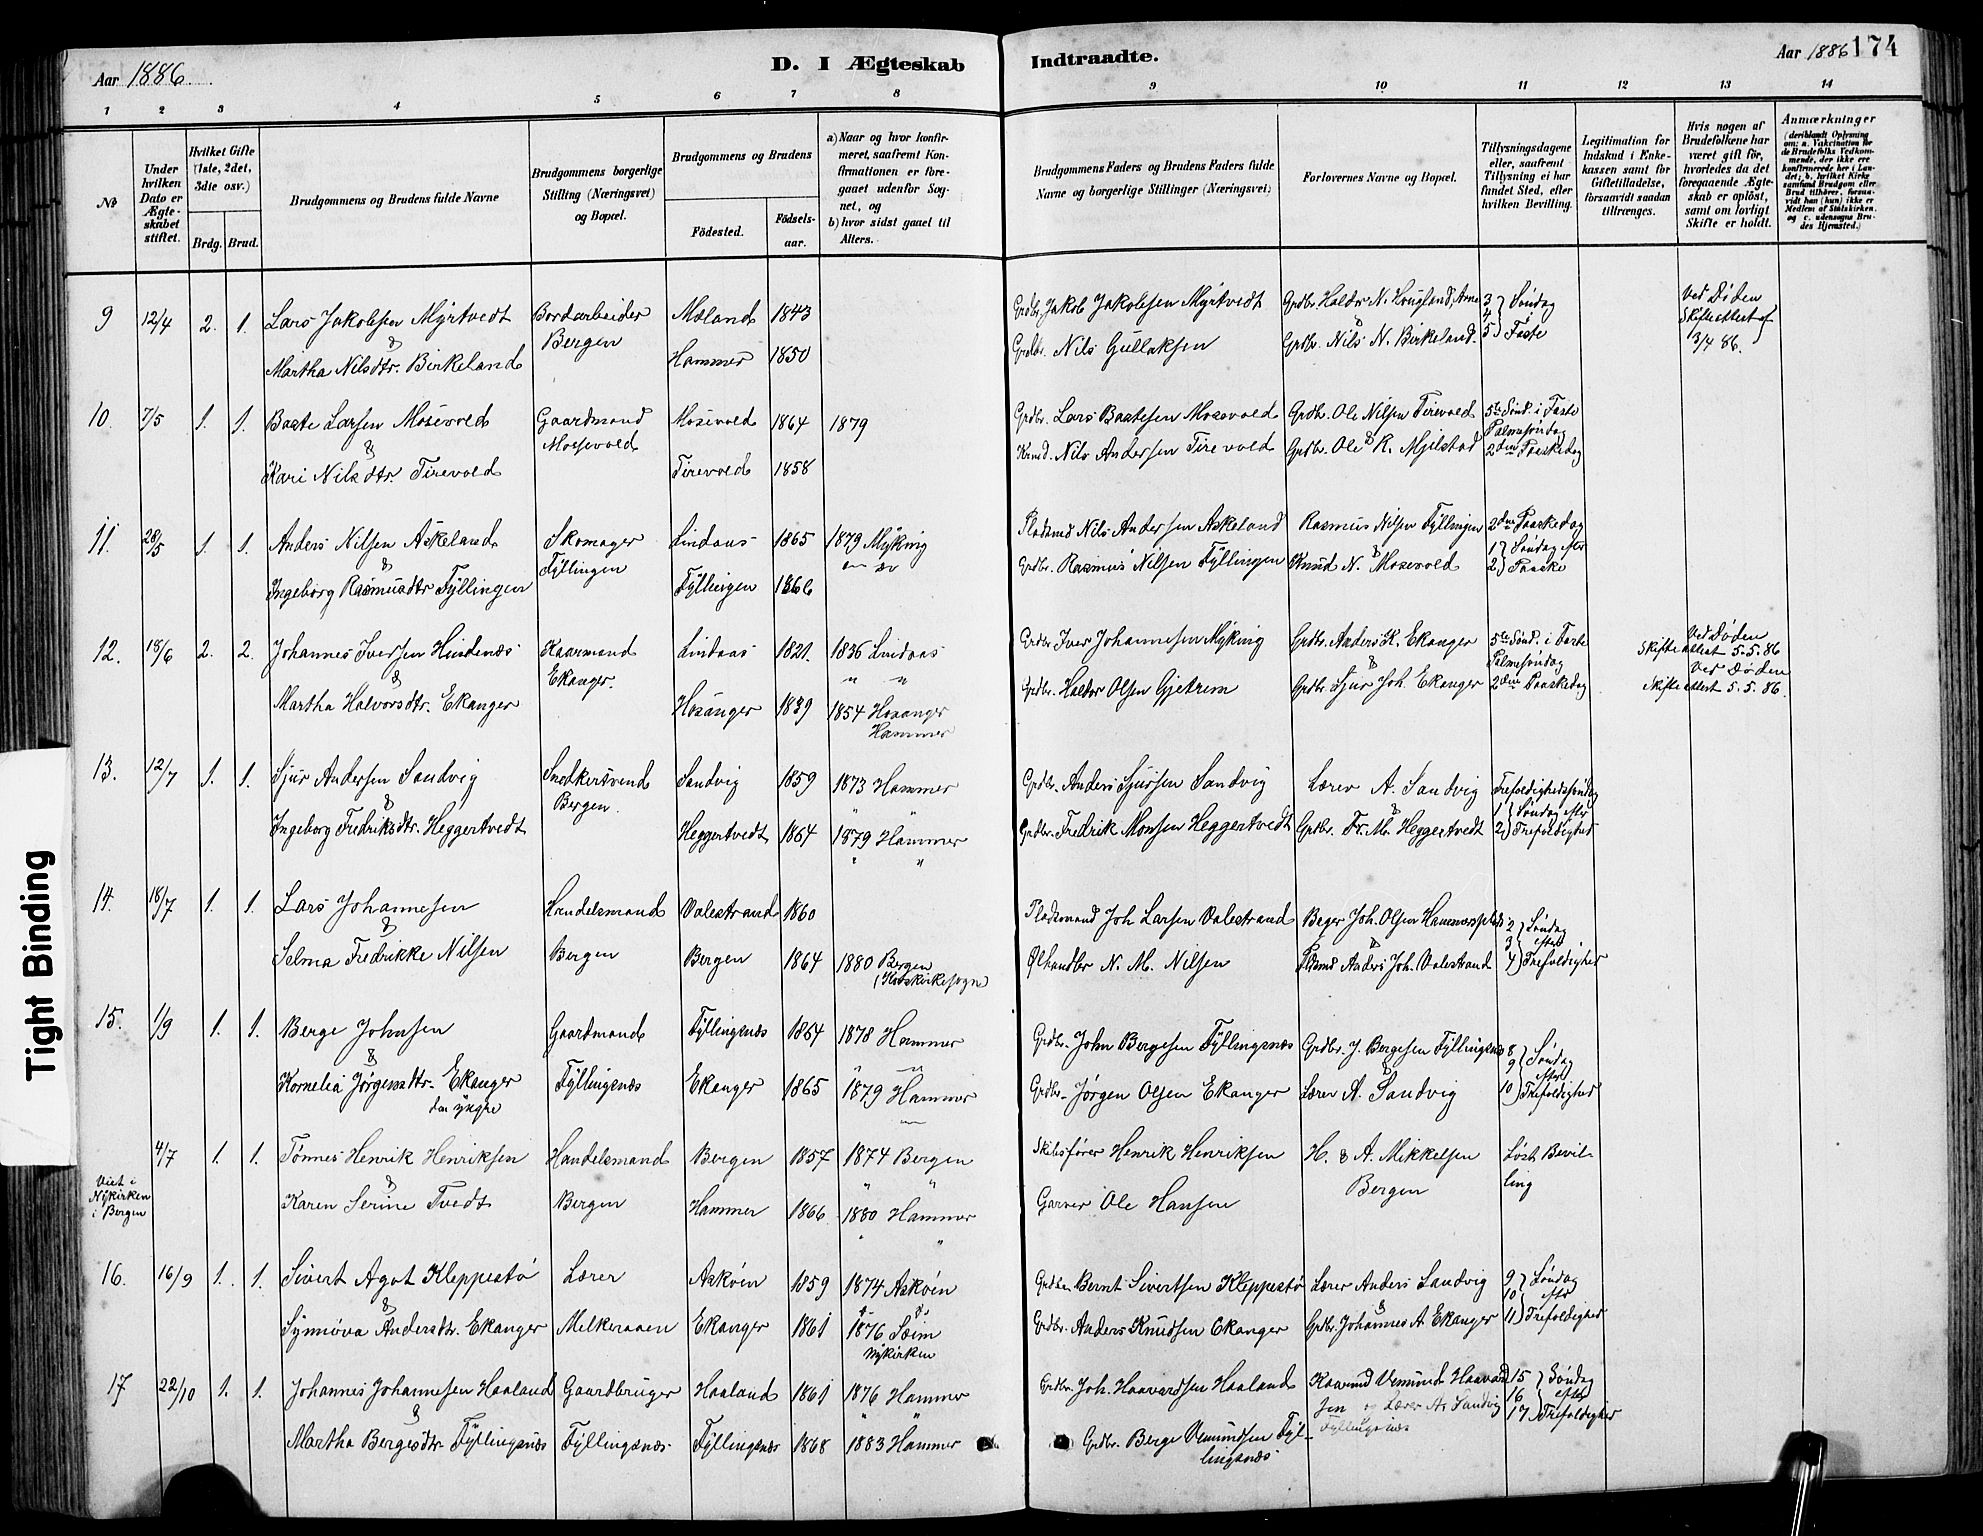 Aar 1886.
D. I Ægteskab
Indtraadte.
Aar 1886
174
1 2 3 4 5 6 7 8 9 10 11 12 13 14
No
Under hvilken Dato er Ægteskabet stiftet.
Hvilket Gifte (1ste, 2det, 3die osv.)
Brdg. Brud.
Brudgommens og Brudens fulde Navne
Brudgommens borgerlige Stilling (Næringsvei) og Bopæl.
Brudgommens og Brudens
Fødested.
Fødselsaar.
a) Naar og hvor konfirmeret, saafremt Konfirmationen er foregaaet udenfor Sognet, og
b) hvor sidst gaaet til Alters.
Brudgommens Faders og Brudens Faders fulde Navne og borgerlige Stillinger (Næringsvei)
Forlovernes Navne og Bopæl.
Tillysningsdagene eller, saafremt Tillysning ei har fundet Sted, efter hvilken Bevilling.
Legitimation for Indskud i Enkekassen samt for Giftetilladelse, forsaavidt saadan tiltrænges.
Hvis nogen af Brudefolkene har været gift før, hvorledes da det foregaaende Ægteskab er opløst, samt om lovligt Skifte er holdt.
Anmærkninger
(deriblandt Oplysning om: a. Vakcination for de Brudefolks Vedkommende, der ikke ere konfirmerede her i Landet; b. hvilket Kirkesamfund Brudgom eller Brud tilhører, forsaavidt han (hun) ikke er Medlem af Statskirken, og c. udensogns Brudes Hjemsted.)
9 12/4 2. 1. Lars Jakobsen Myrtvedt Bordarbeider Mæland 1843 Grdbr. Jakob Jakobsen Myrtvedt Grdbr. Haldor N. Hougland, Arne 3 } Søndag Ved Døden
& Bergen & 4 Skifteattest af
Martha Nilsdtr. Birkeland Hammer 1850 Grdbr. Nils Gullaksen Grdbr. Nils N. Birkeland. 5 } Faste 3/4 86.
10. 7/5 1. 1. Baste Larsen Mosevold Gaardmand Mosevold 1864 1879 Grdbr. Lars Bastesen Mosevold Grdbr. Ole Nilsen Tirevold 5te Sønd. i Faste
& Mosevold & Palmesøndag
Kari Nilsdtr. Tirevold Tirevold 1858 Nils Andersen Tirevold Grdbr. Ole R. Mjelstad 2den Paaskedag
11. 28/5 1. 1. Anders Nilsen Askeland Skomager Lindaas 1865 1879 Myking Pladsmd Nils Andersen Askeland Rasmus Nilsen Fyllingen 2den Paaskedag
& Fyllingen & 1 } Søndag efter
Ingeborg Rasmusdtr Fyllingen Fyllingen 1866 Grdbr. Rasmus Nilsen Fyllingen Knud N. Mosevold 2 } Paaske
12. 18/6 2. 2. Johannes Iversen Hindenæs Kaarmand Lindaas 1821. 1836 Lindaas Grdbr Iver Johannesen Myking Grdbr. Anders K. Ekanger 5te Sønd. i Faste Ved Døden
& Ekanger. " " & Palmesøndag Skifteattest 5.5.86
Martha Halvorsdtr. Ekanger Hosanger 1839 1854 Hosanger Grdbr. Haldor Olsen Gjetrem Grdbr. Sjur Joh. Ekanger 2den Paaskedag Ved Døden
Hammer Skifteattest 5.5.86.
13. 12/7 1. 1. Sjur Andersen Sandvig Snedkersvend Sandvig 1859 1873 Hammer Grdbr. Anders Sjursen Sandvig Lærer A. Sandvig Trefoldighedssøndag
& Bergen. " " & 1 } Søndag efter
Ingeborg Fredriksdtr. Heggertvedt Heggertvedt 1864 1879 Hammer Grdbr. Fredrik Monsen Heggertvedt Grdbr. Fr. M. Heggertvedt 2 } Trefoldighed
" "
14. 18/7 1. 1. Lars Johannesen Handelsmand Valestrand 1860 Pladsmand Joh. Larsen Valestrand Bager Joh. Olsen Hammersplads 2 } Søndag
& & 3 efter
Selma Fredrikke Nilsen Bergen Bergen 1864 1880 Bergen Ølhandler N. M. Nilsen Anders Joh. Valestrand 4 } Trefoldighed
(Korskirkesogn)
15. 1/9 1. 1. Berge Johnsen Gaardmand Fyllingsnæs 1864 1878 Hammer Grdbr. John Bergesen Fyllingsnæs Grdbr. J. Bergesen Fyllingsnæs 8 } Søndag
& " " & 9 efter
Kornelia Jørgensdtr. Ekanger Fyllingsnæs Ekanger 1865 1879 Hammer Grdbr. Jørgen Olsen Ekanger Lærer A. Sandvig 10 } Trefoldighed
den yngre
4/7 1. 1. Tønnes Henrik Henriksen Handelsmand Bergen 1857 1874 Bergen Skibsfører Henrik Henriksen H. & A. Mikkelsen Løst Bevil-
Viet i Nykirken i Bergen & " " Bergen ling
Karen Serine Tvedt Bergen Hammer 1866 1880 Hammer Garver Ole Hansen
" "
16. 16/9 1. 1. Sivert Agot Kleppestø Lærer Askøen 1859 1874 Askøen Grdbr Bernt Sivertsen Kleppestø Lærer Anders Sandvig 9 } Søndag
& & 10 efter
Synnøva Andersdtr. Ekanger Melkeraaen Ekanger 1861 1876 Sæim Grdbr. Anders Knudsen Ekanger Grdbr. Johannes A Ekanger 11 } Trefoldighed
Nykirken
17 22/10 1. 1. Johannes Johannesen Haaland Gaardbruger Haaland 1861 1876 Hammer Grdbr. Joh. Haavardsen Haaland Kaarmd Vemund Haavard 15 } Søndag
& " " sen og Lærer A. Sandvig 16 efter
Martha Bergesdtr. Fyllingsnæs Fyllingsnæs. Fyllingsnæs 1868 1883 Hammer Grdbr. Berge Vemundsen Fyl- Fyllingsnæs 17 } Trefoldighed
lingsnæs
Tight Binding